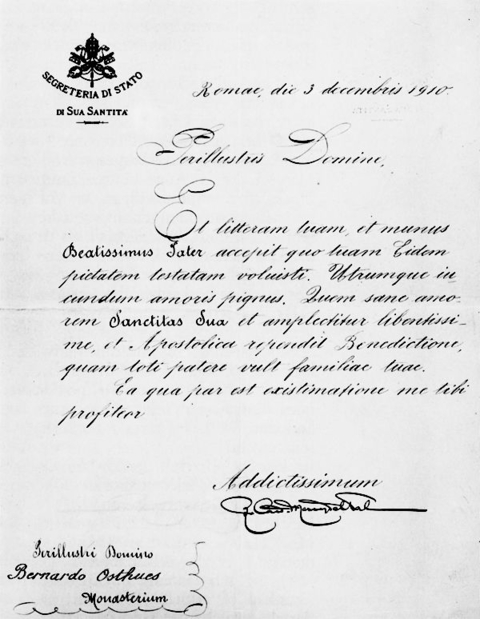 SEGRETERIA DI STATO
DI SUA SANTITÀ
Romae, die 3 decembris 1910
Perillustris Domine,
Et litteram tuam, et munus
Beatissimus Pater accepit quo tuam Eidem
pietatem testatam voluisti. Utrumque iu-
cundum amoris pignus. Quem sane amo-
rem Sanctitas Sua et amplectitur libentissi-
me, et Apostolica rependit Benedictione,
quam toti patere vult familiae tuae.
Ea qua par est existimatione me tibi
profiteor
Addictissimum
R. Card. Merry del Val
Perillustri Domino
Bernardo Osthues
Monasterium